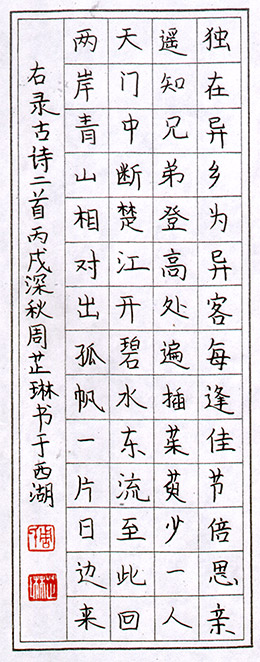 独在异乡为异客每逢佳节倍思亲
遥知兄弟登高处遍插茱萸少一人
天门中断楚江开碧水东流至此回
两岸青山相对出孤帆一片日边来
右录古诗二首丙戌深秋周芷琳书于西湖